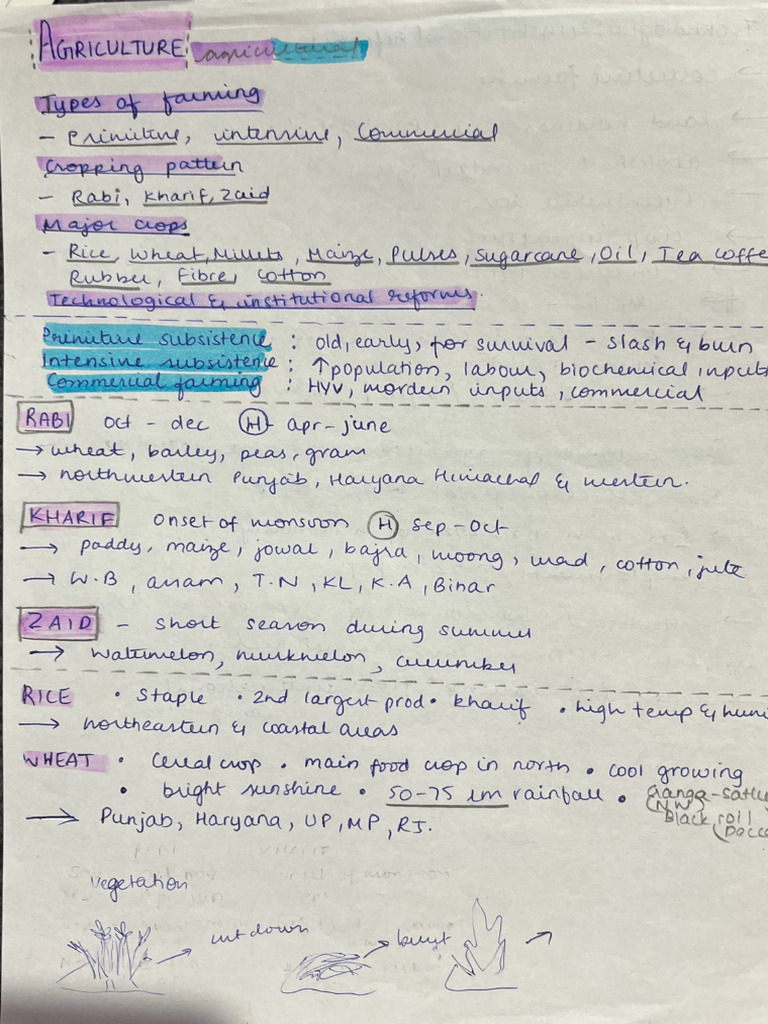 AGRICULTURE agricultural
Types of farming
- Primitive, intensive, Commercial
Cropping pattern
- Rabi, Kharif, Zaid
Major crops
- Rice, Wheat, Millets, Maize, Pulses, Sugarcane, Oil, Tea coffe
Rubber, Fibre, Cotton
Technological & institutional reforms.
Primitive subsistence : old, early, for survival - slash & burn
Intensive subsistence : ↑population, labour, biochemical inputs
Commercial farming : HYV, mordern inputs, commercial
RABI oct - dec (H) - apr-june
→ wheat, barley, peas, gram
→ northwestern Punjab, Haryana Himachal & western.
KHARIF onset of monsoon (H) sep-oct
→ paddy, maize, jowar, bajra, moong, urad, cotton, jute
→ W.B, assam, T.N, KL, K.A, Bihar
ZAID - short season during summer
→ watermelon, muskmelon, cucumber
RICE • Staple • 2nd largest prod • kharif • high temp & humi
→ northeastern & coastal areas
WHEAT • Cereal crop • main food crop in north • cool growing
• bright sunshine • 50-75 cm rainfall • Ganga-Satlu
(NW)
Black soil
(Decca
→ Punjab, Haryana, UP, MP, RJ.
vegetation
cut down
burnt